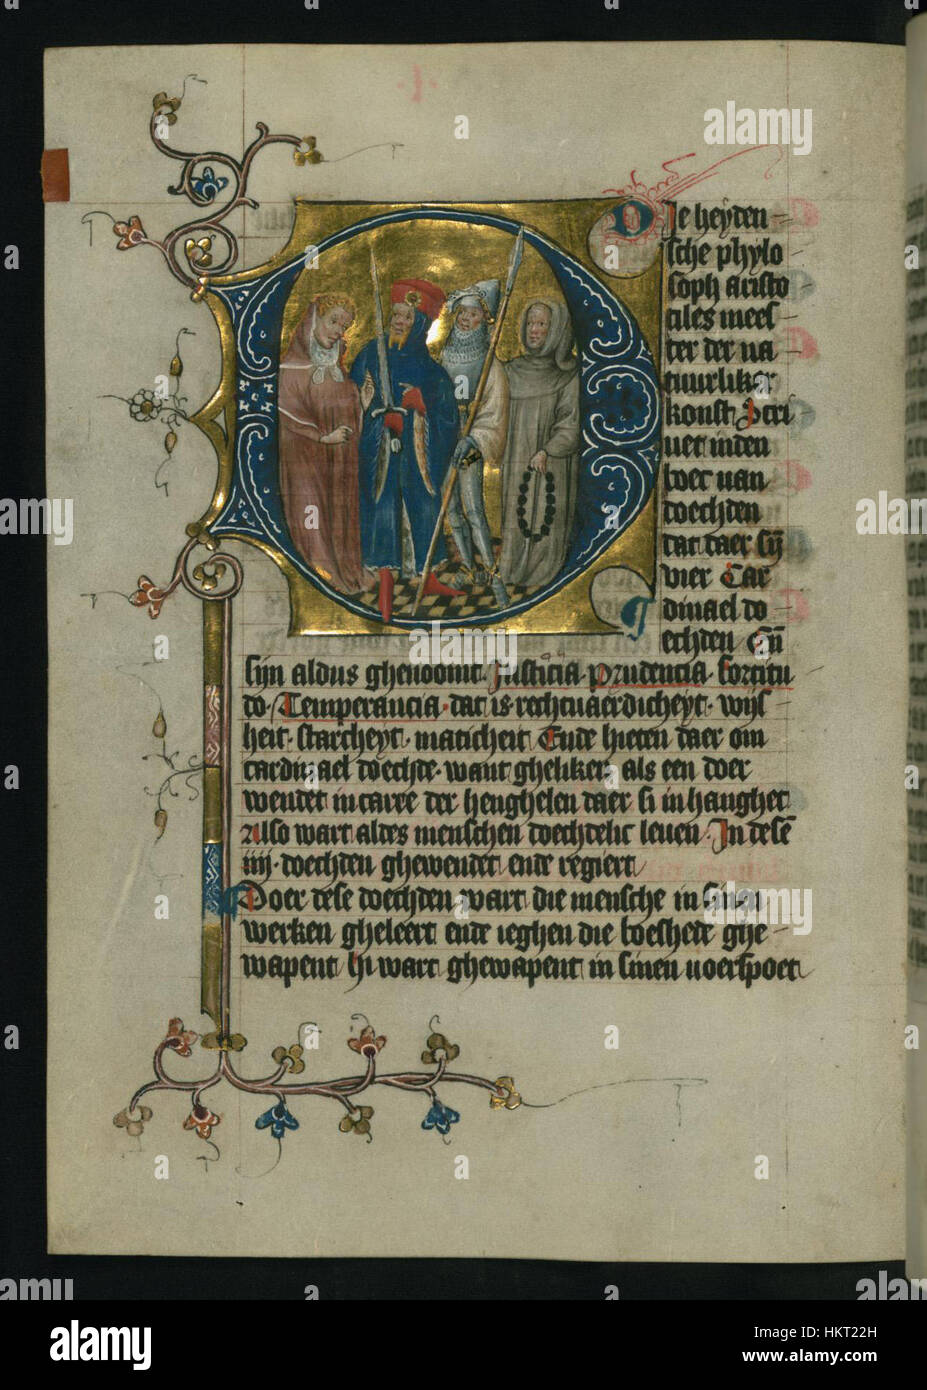 Die heyden
sche phylo
soph aristo
tiles mees
ter der na
tuurliker
konst Scri
uet inden
boec uan
doechden
dat daer sỹ
vier Car
dinael do
echden Eñ
sijn aldus ghenoomt. Justicia. prudencia. fortitu
do. Temperancia. dat is. rechtuaerdicheyt. wijs
heit. starcheyt. maticheit Ende hieten daer om
cardinael doechde. want gheliker als een doer
wendet in carre der henghelen daer si in hanghet
Also wart aldes menschen doechdelic leuen. In dese
iiij. doechden ghewendet ende regiert
Doer dese doechden wart die mensche in sinen
werken gheleert ende ieghen die boeshede ghe
wapent hi wart ghewapent in sinen uoerspoet
alamy
Image ID: HKT22H
www.alamy.com